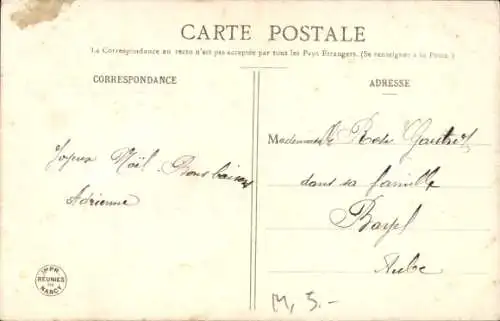 CARTE POSTALE
La Correspondance au recto n'est pas acceptée par tous les Pays Etrangers. (Se renseigner à la Poste.)
CORRESPONDANCE
ADRESSE
Joyeux Noël Bons baisers
Adrienne
Mademoiselle Rose
dans sa famille
Aube
IMPR.
RÉUNIES
DE
NANCY
M, 5.-